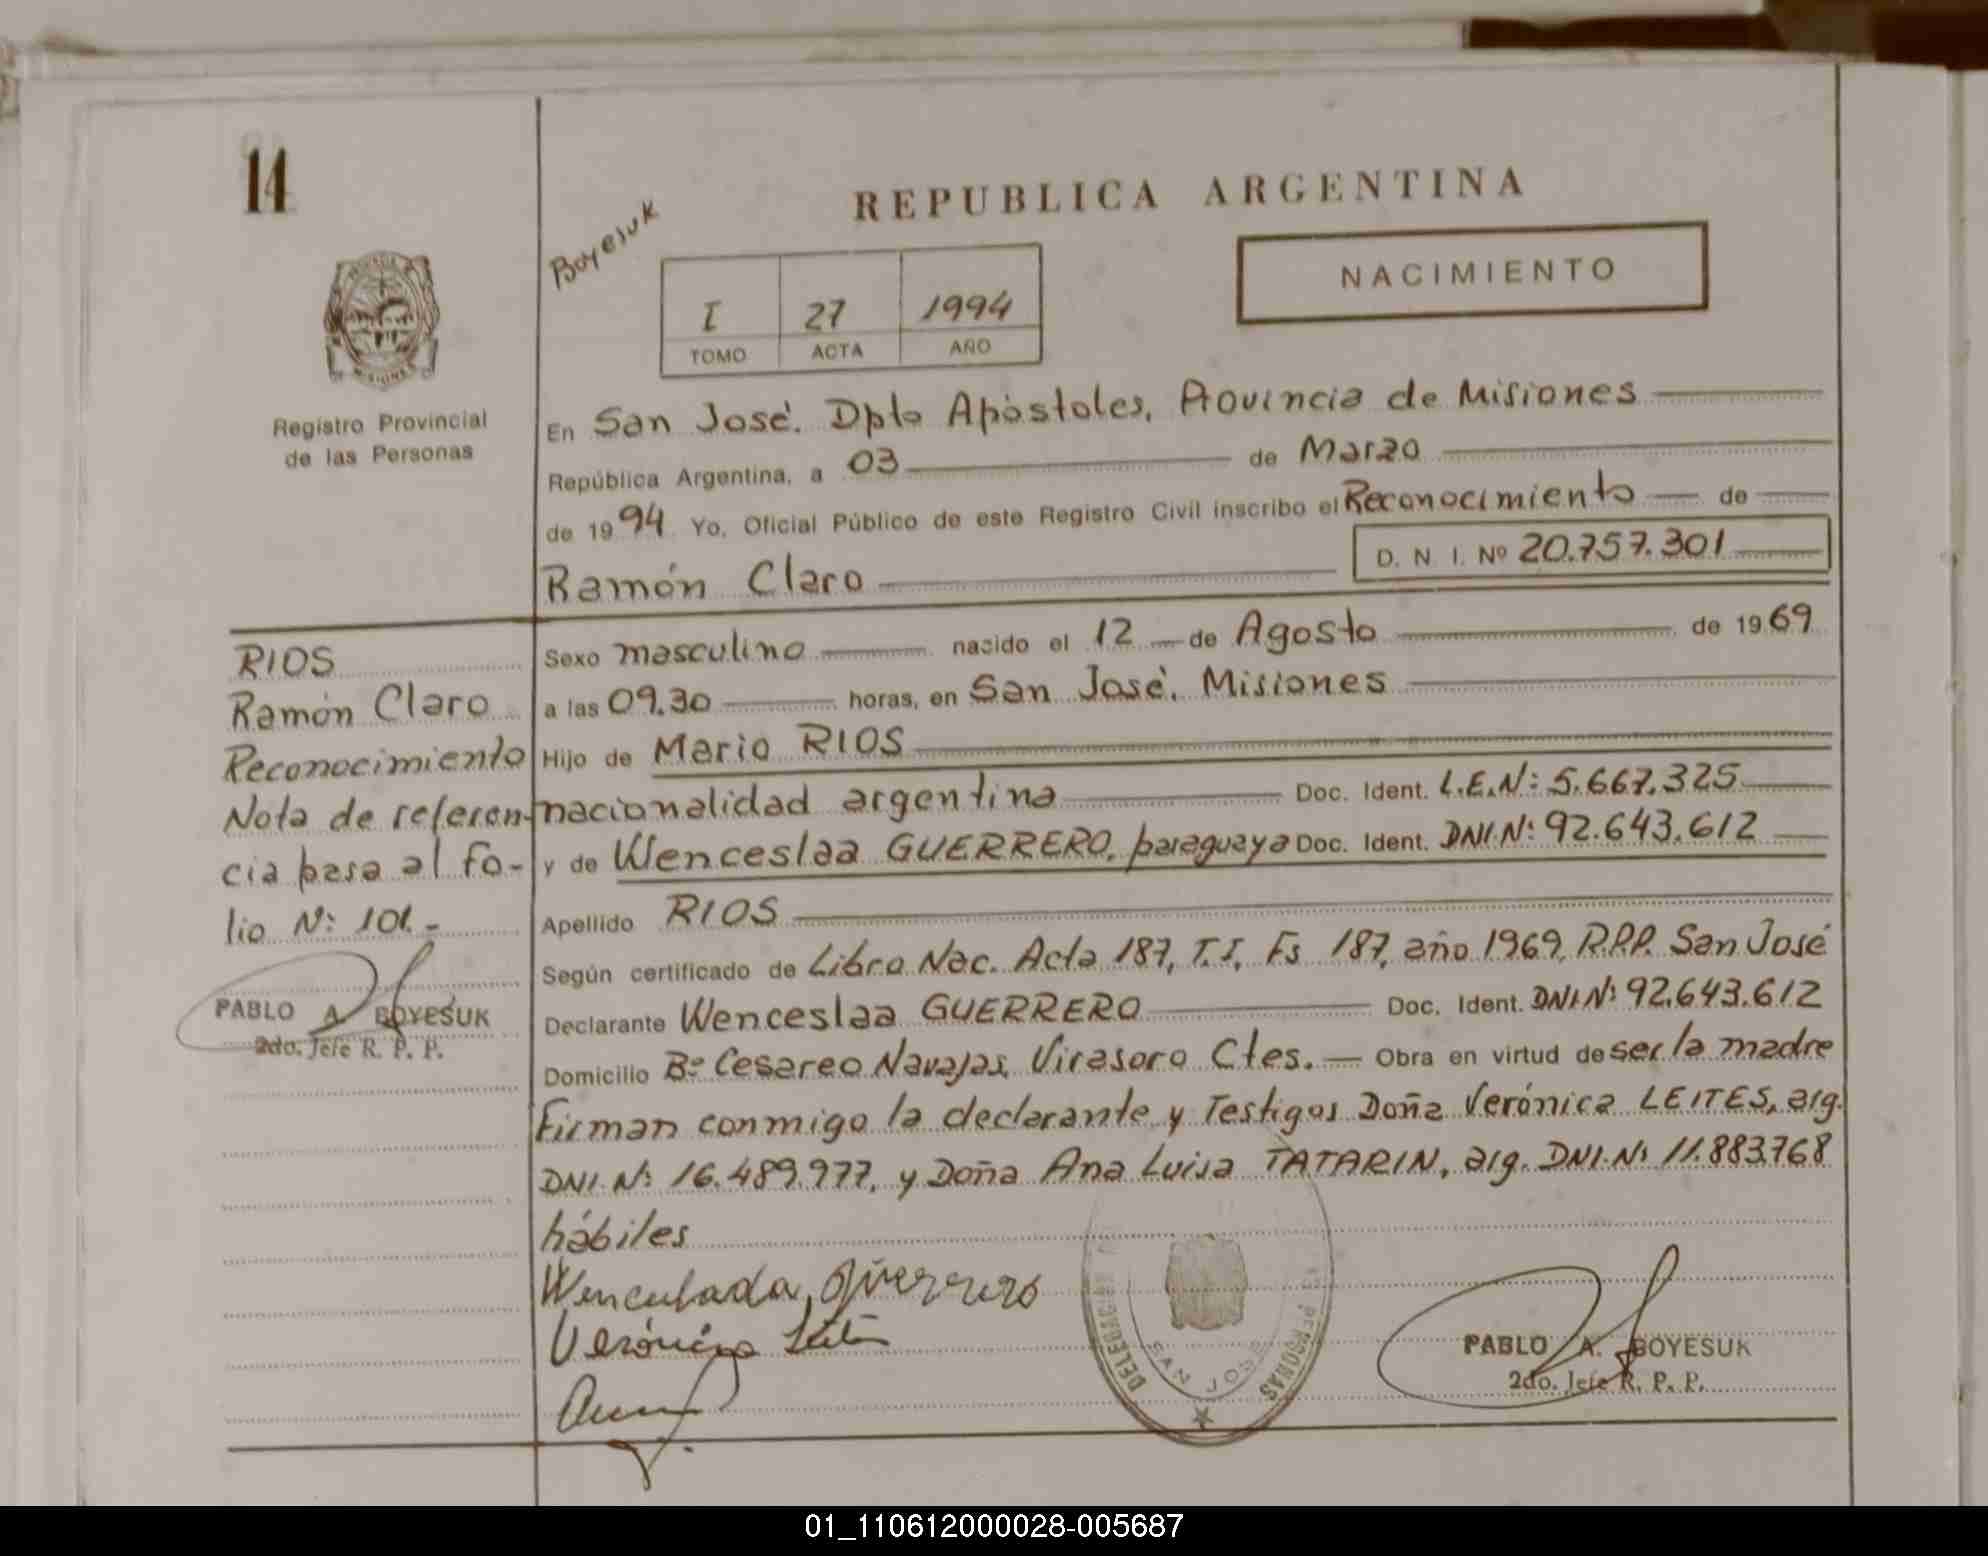 14
REPUBLICA ARGENTINA
Boyesuk
NACIMIENTO
I 27 1994
TOMO ACTA AÑO
Registro Provincial
de las Personas
En San José. Dpto Apóstoles, Provincia de Misiones
República Argentina, a 03 de Marzo
de 1994 Yo, Oficial Público de este Registro Civil inscribo el Reconocimiento de
Ramón Claro D. N. I. Nº 20.757.301
RIOS
Ramón Claro
Reconocimiento
Nota de referen-
cia pasa al Fo-
lio Nº 101.-
PABLO A. BOYESUK
2do. Jefe R. P. P.
Sexo masculino nacido el 12 de Agosto de 1969
a las 09.30 horas, en San José. Misiones
Hijo de Mario RIOS
nacionalidad argentina Doc. Ident. L.E.Nº 5.667.325
y de Wenceslaa GUERRERO, paraguaya Doc. Ident. DNI.Nº 92.643.612
Apellido RIOS
Según certificado de Libro Nac. Acta 187, T.I, Fs 187, año 1969, R.P.P. San José
Declarante Wenceslaa GUERRERO Doc. Ident. DNI.Nº 92.643.612
Domicilio Bº Cesareo Navajas, Virasoro Ctes. Obra en virtud de ser la madre
Firman conmigo la declarante y Testigos Doña Verónica LEITES, arg.
DNI.Nº 16.489.977, y Doña Ana Luisa TATARIN, arg. DNI.Nº 11.883.768
hábiles
Guerrero
Verónica
SAN JOSE
PERSONAS
PABLO A. BOYESUK
2do. Jefe R. P. P.
01_110612000028-005687